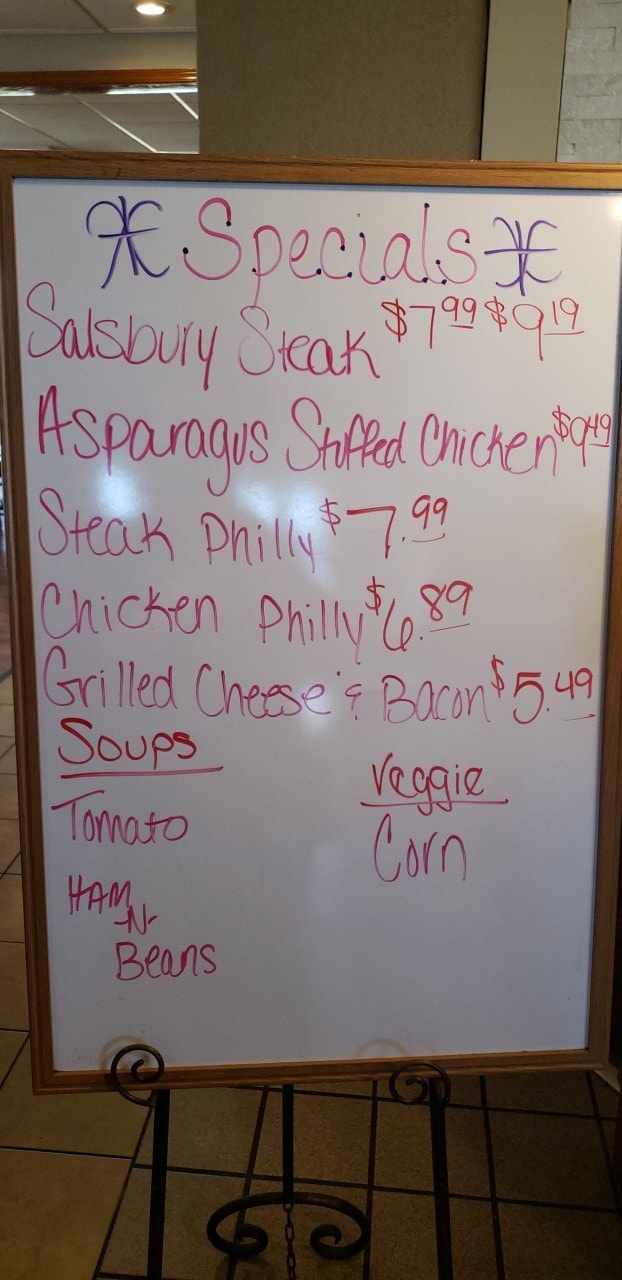 Specials
Salsbury Steak $7.99 $9.19
Asparagus Stuffed Chicken $9.49
Steak Philly $7.99
Chicken Philly $6.89
Grilled Cheese & Bacon $5.49
Soups
Tomato
HAM
-N-
Beans
Veggie
Corn